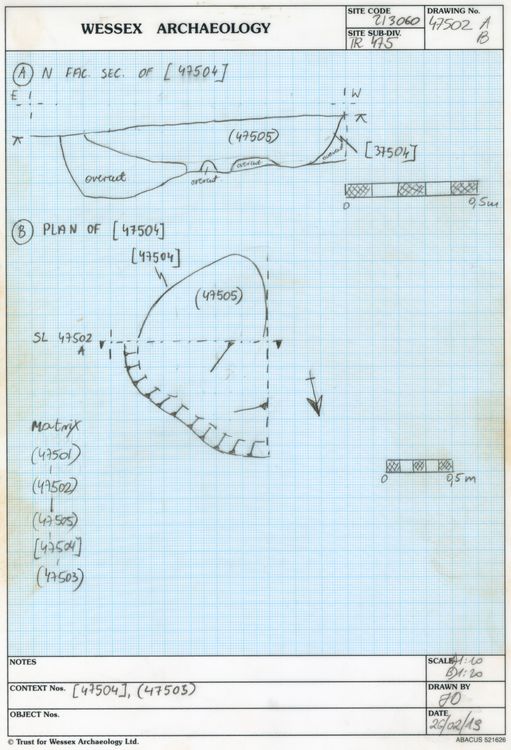 WESSEX ARCHAEOLOGY
SITE CODE
213060
SITE SUB-DIV.
TR 475
DRAWING No.
47502 A
B
A N FAC. SEC. OF [47504]
E
W
(47505)
[37504]
overcut
overcut
overcut
overcut
0 0,5m
B PLAN OF [47504]
[47504]
(47505)
SL 47502
A
Matrix
(47501)
(47502)
(47505)
[47504]
(47503)
0 0,5m
NOTES
SCALE A1:10
B1:20
CONTEXT Nos. [47504], (47505)
DRAWN BY
JO
OBJECT Nos.
DATE
26/02/19
© Trust for Wessex Archaeology Ltd.
ABACUS 521626